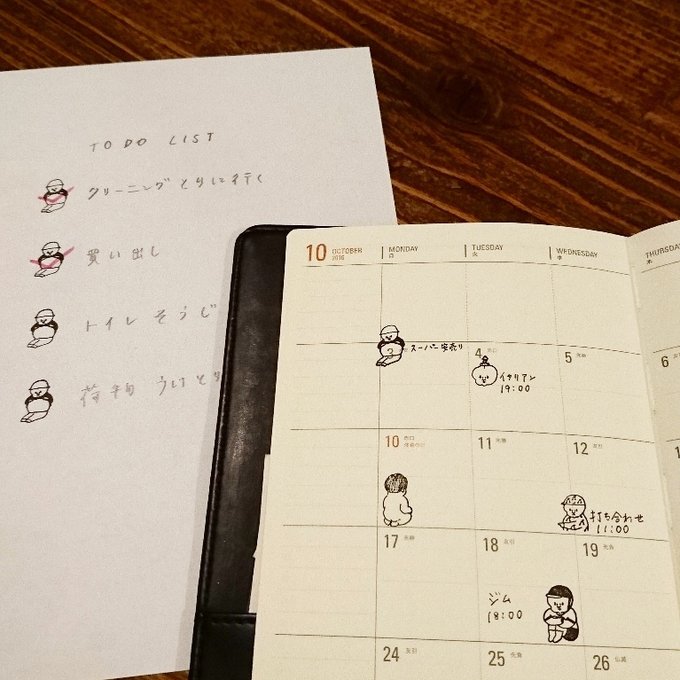 TO DO LIST
クリーニングとりに行く
買い出し
トイレそうじ
荷物うけと
10 OCTOBER 2016
MONDAY 月
TUESDAY 火
WEDNESDAY 水
THURSDAY 木
スーパー安売り
4
イタリアン
19:00
5
6
10
11
12
打ち合わせ
11:00
17
18
19
ジム
18:00
24
25
26